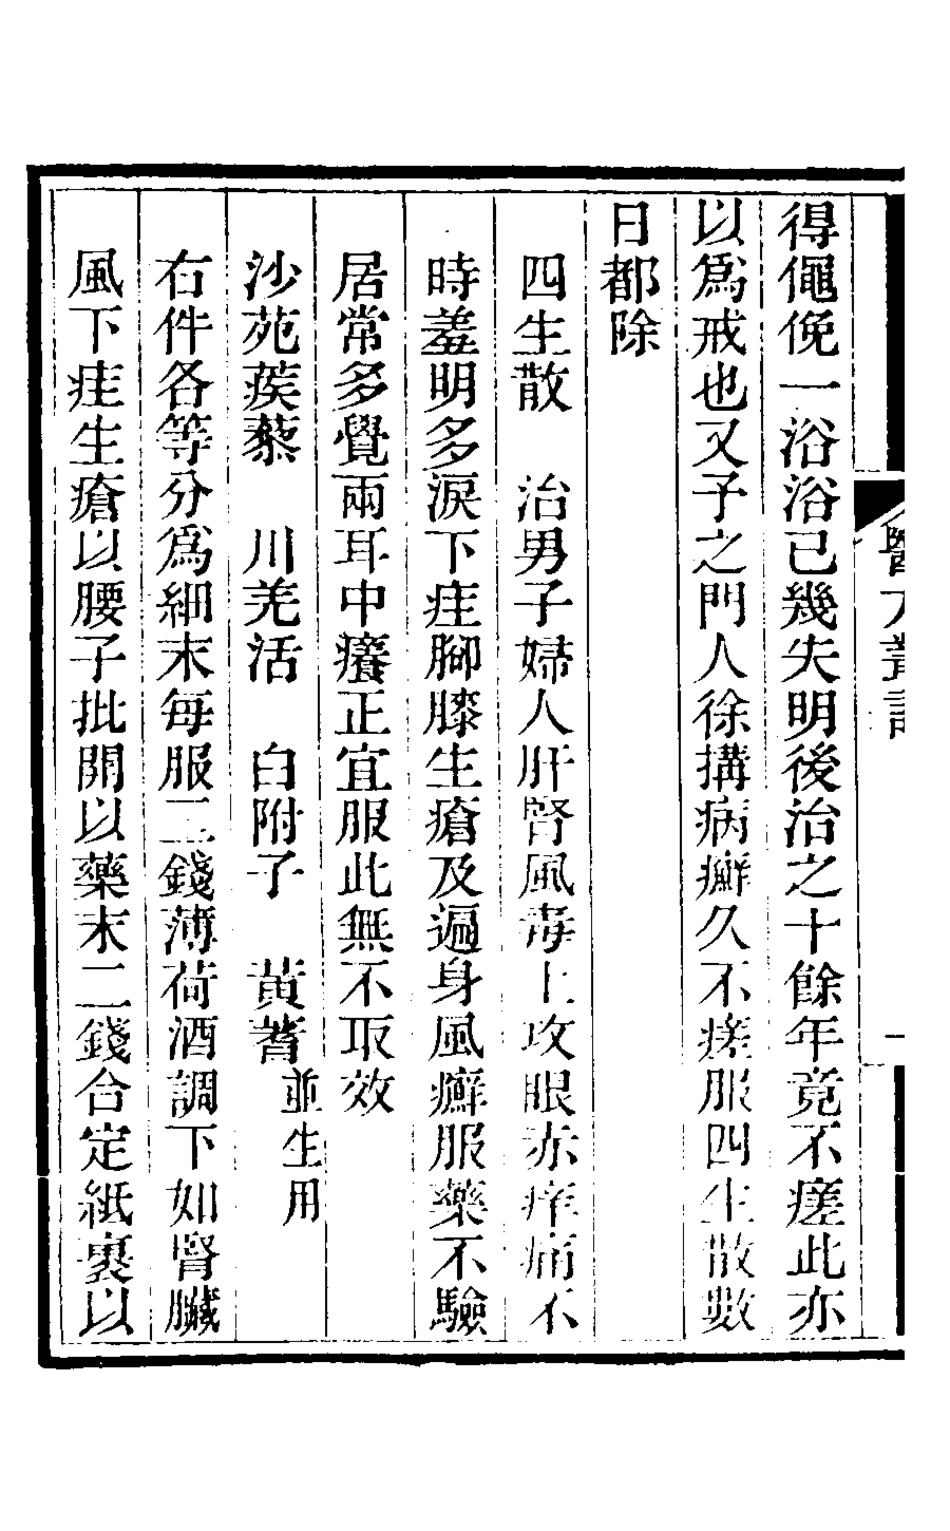 得僶俛一浴浴已幾失明後治之十餘年竟不瘥此亦
以爲戒也又予之門人徐搆病癬久不瘥服四生散數
日都除
四生散　治男子婦人肝腎風毒上攻眼赤痒痛不
時羞明多淚下疰腳膝生瘡及遍身風癬服藥不驗
居常多覺兩耳中癢正宜服此無不取效
沙苑蒺藜　川羌活　白附子　黃蓍並生用
右件各等分爲細末每服二錢薄荷酒調下如腎臟
風下疰生瘡以腰子批開以藥末二錢合定紙裹以